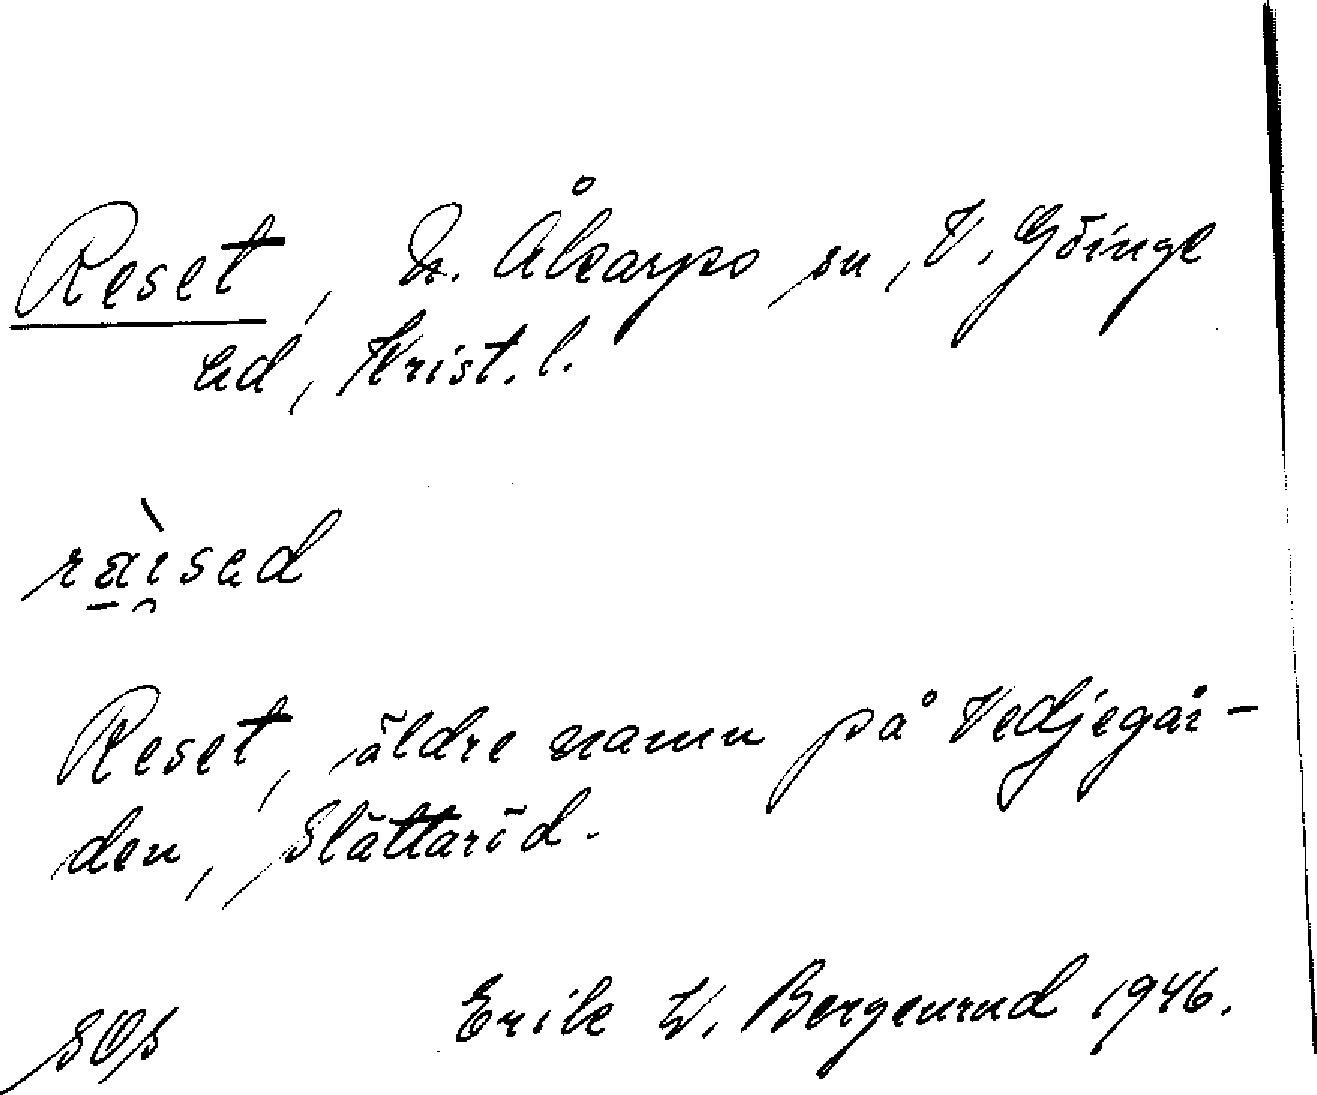 Reset, N. Åkarps sn, V. Göinge
hd, Krist. l.
rä̀i̯sad
Reset, äldre namn på Vedjegår-
den, Slättaröd.
SOS Erik W. Bergenrud 1946.